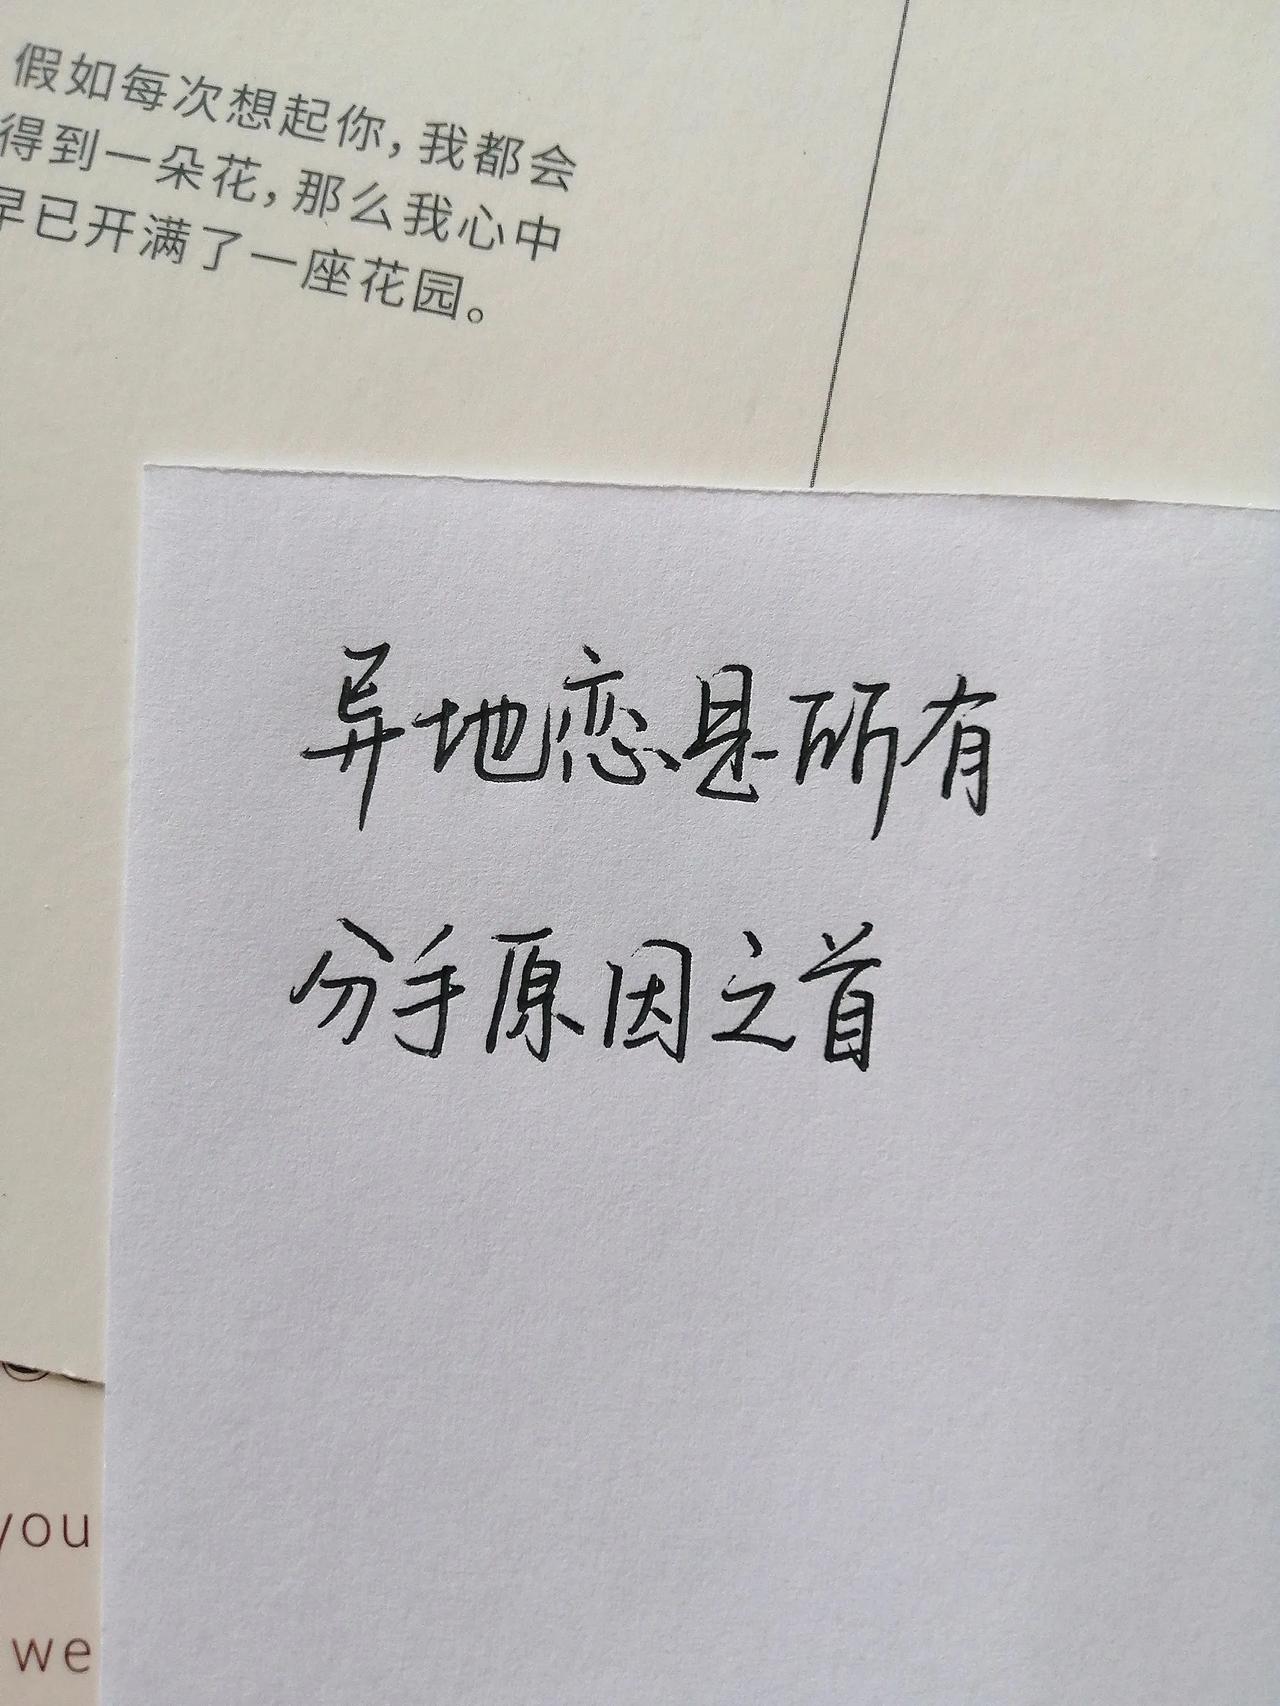 假如每次想起你，我都会
得到一朵花，那么我心中
早已开满了一座花园。
异地恋是所有
分手原因之首
you
we